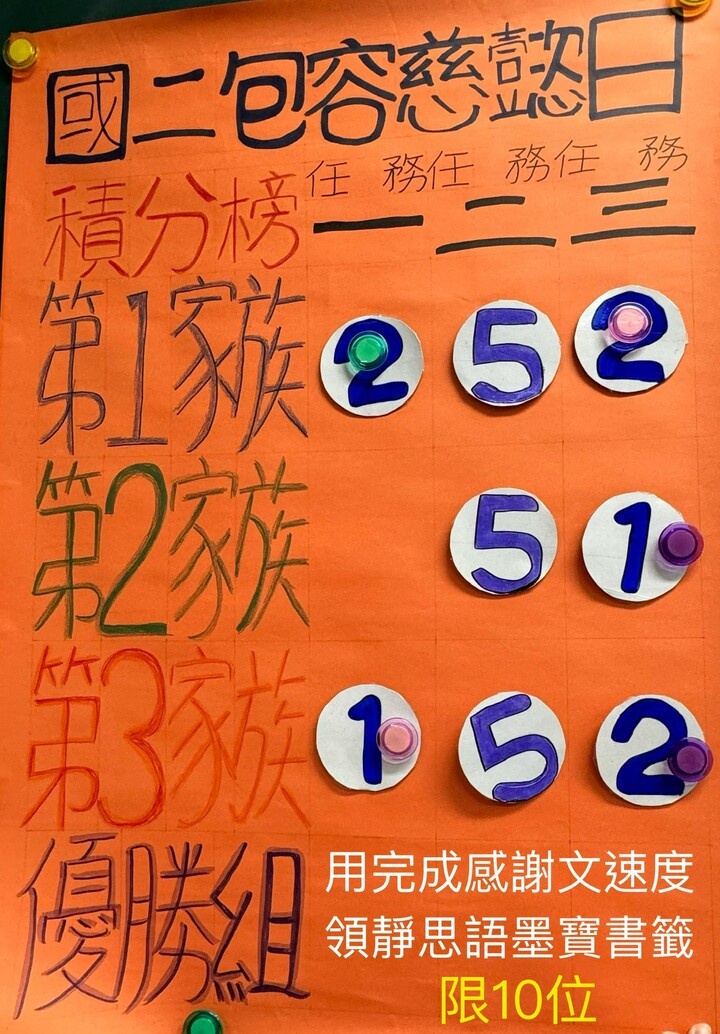 國二包容慈懿日
積分榜 任務一 任務二 任務三
第1家族 2 5 2
第2家族 5 1
第3家族 1 5 2
優勝組
用完成感謝文速度
領靜思語墨寶書籤
限10位